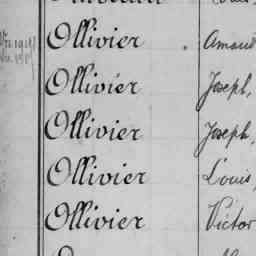 Ollivier Amand
Ollivier Joseph,
Ollivier Joseph,
Ollivier Louis,
Ollivier Victor